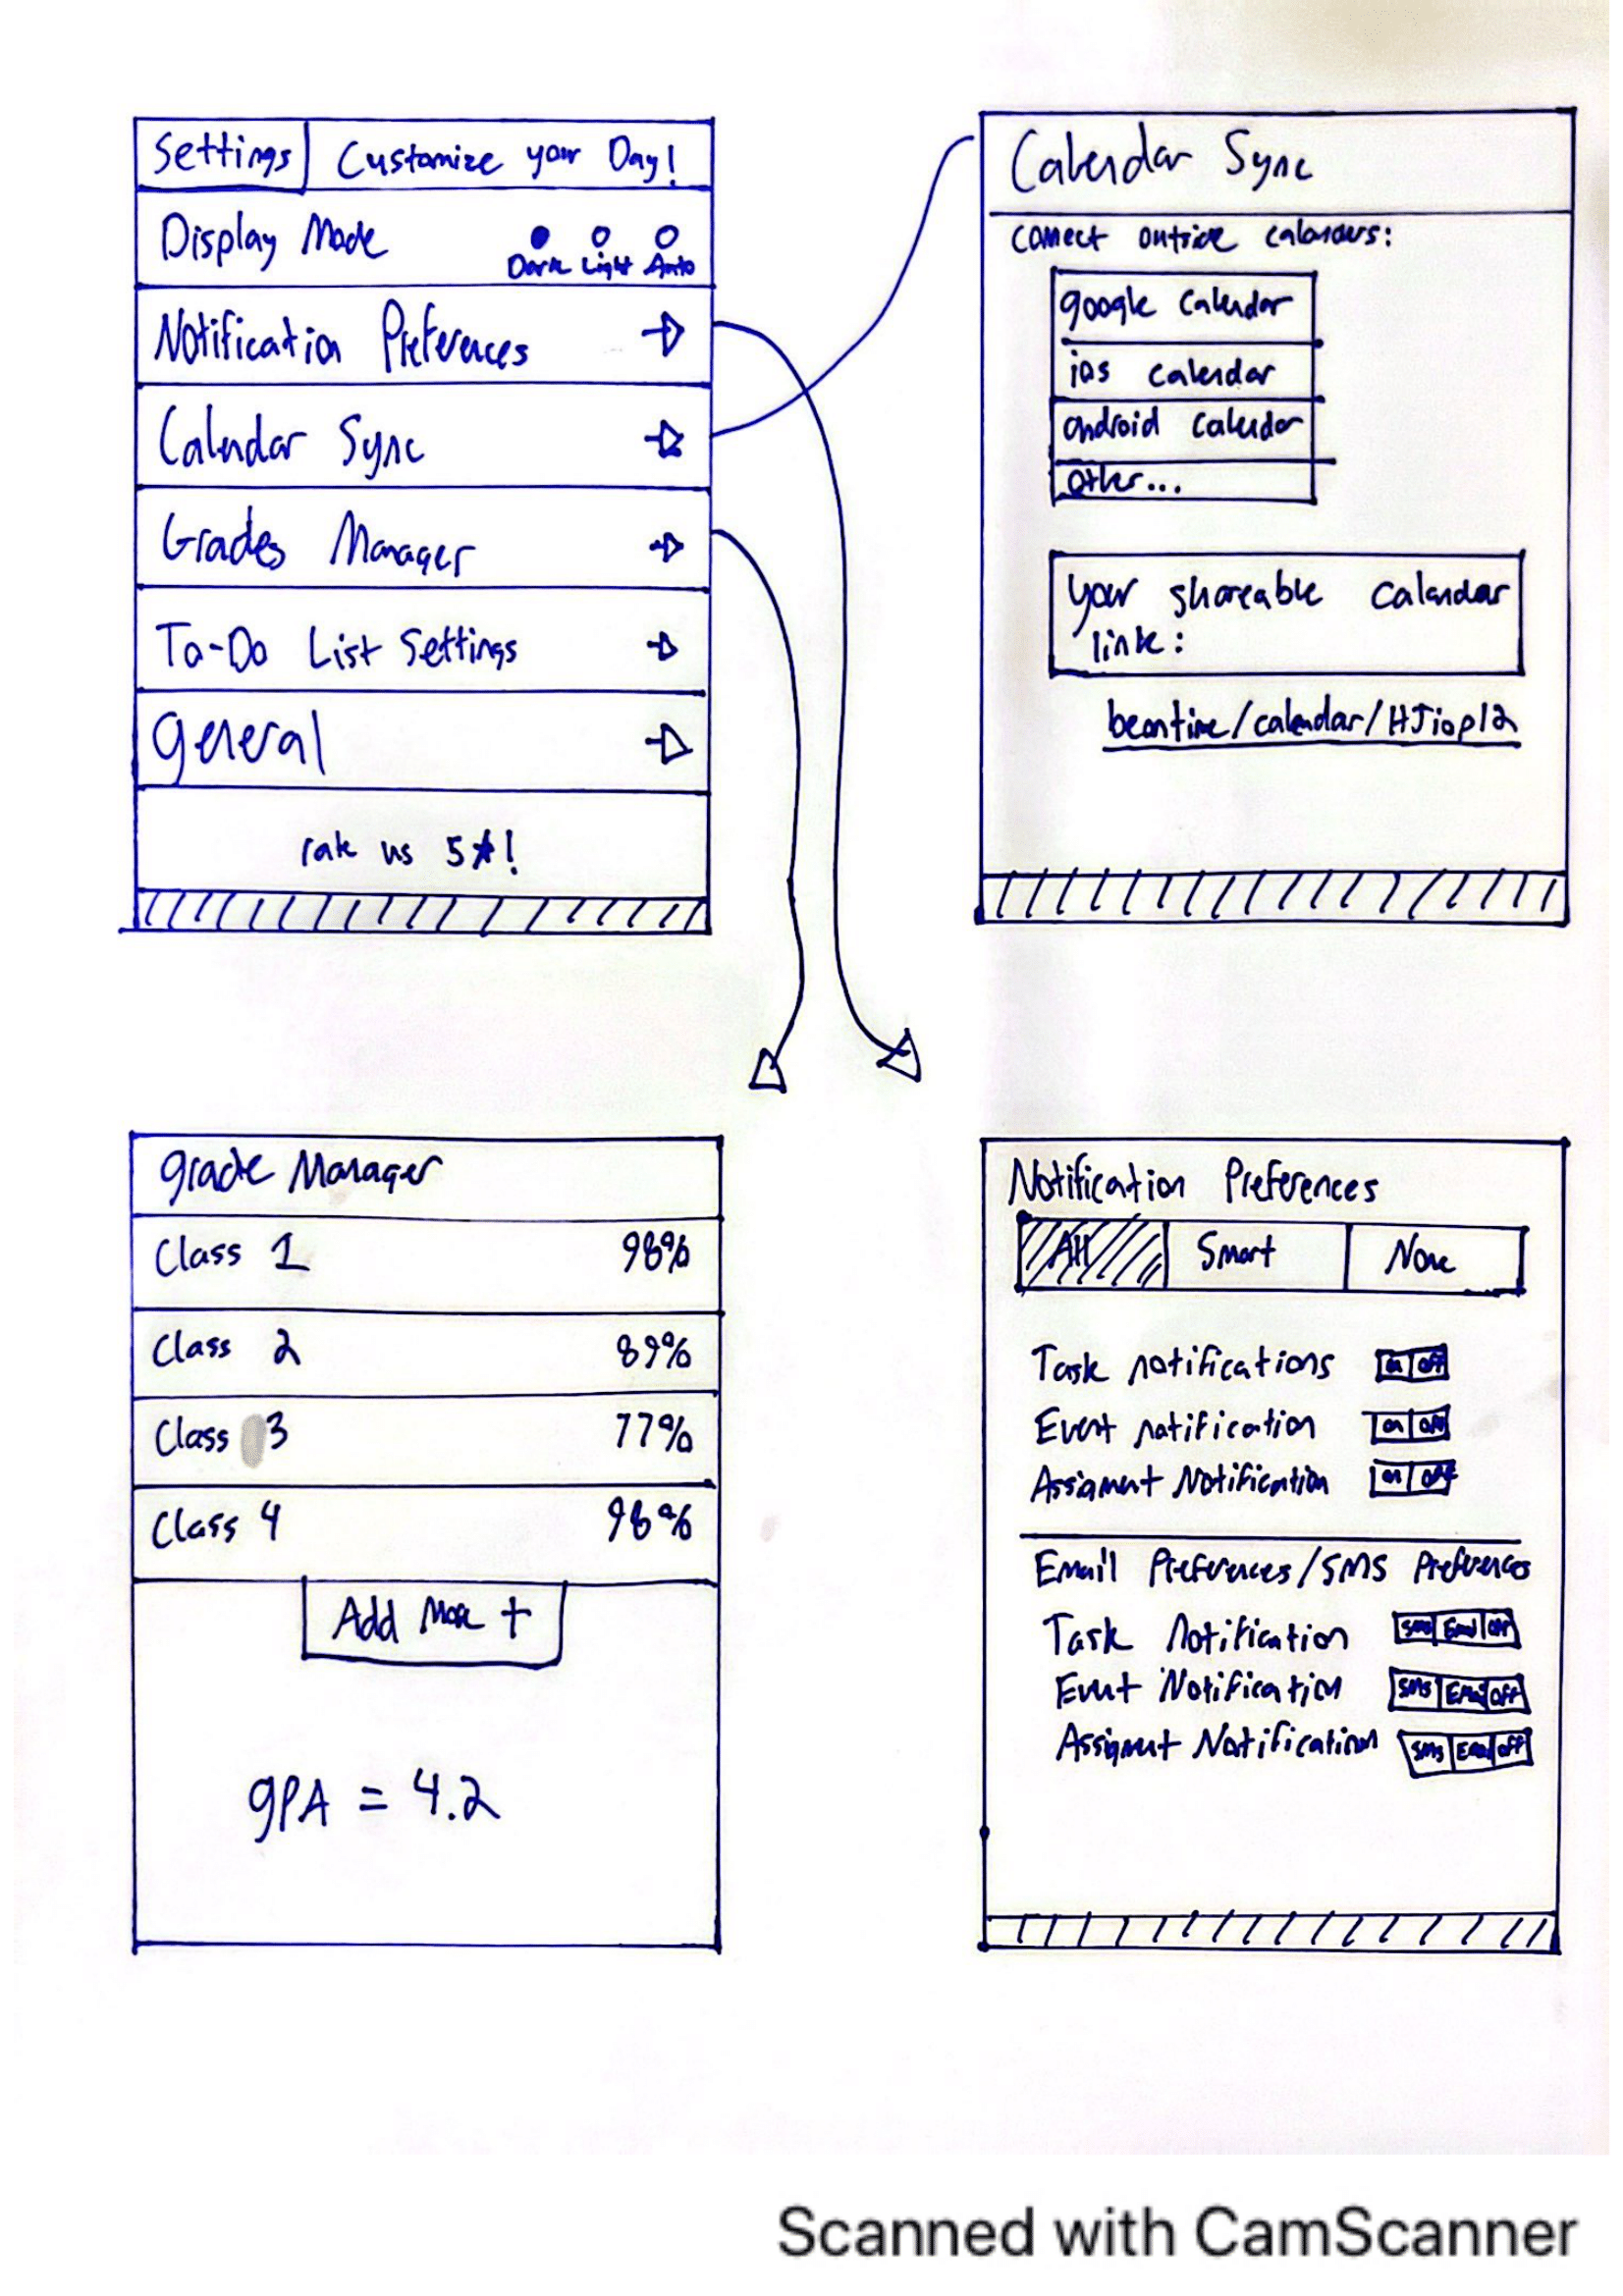 Settings Customize your Day!
Display Mode
Dark Light Auto
Notification Preferences
Calendar Sync
Grades Manager
To-Do List Settings
general
rate us 5★!
Calendar Sync
connect outside calendars:
google calendar
ios calendar
android calendar
other...
your shareable calendar
link:
beontime/calendar/HJiop12
grade Manager
Class 1 98%
Class 2 89%
Class 3 77%
Class 4 98%
Add More +
gPA = 4.2
Notification Preferences
All Smart None
Task notifications on off
Event notification on off
Assignment Notification on off
Email Preferences/SMS Preferences
Task Notification SMS Email off
Event Notification SMS Email off
Assignment Notification SMS Email off
Scanned with CamScanner